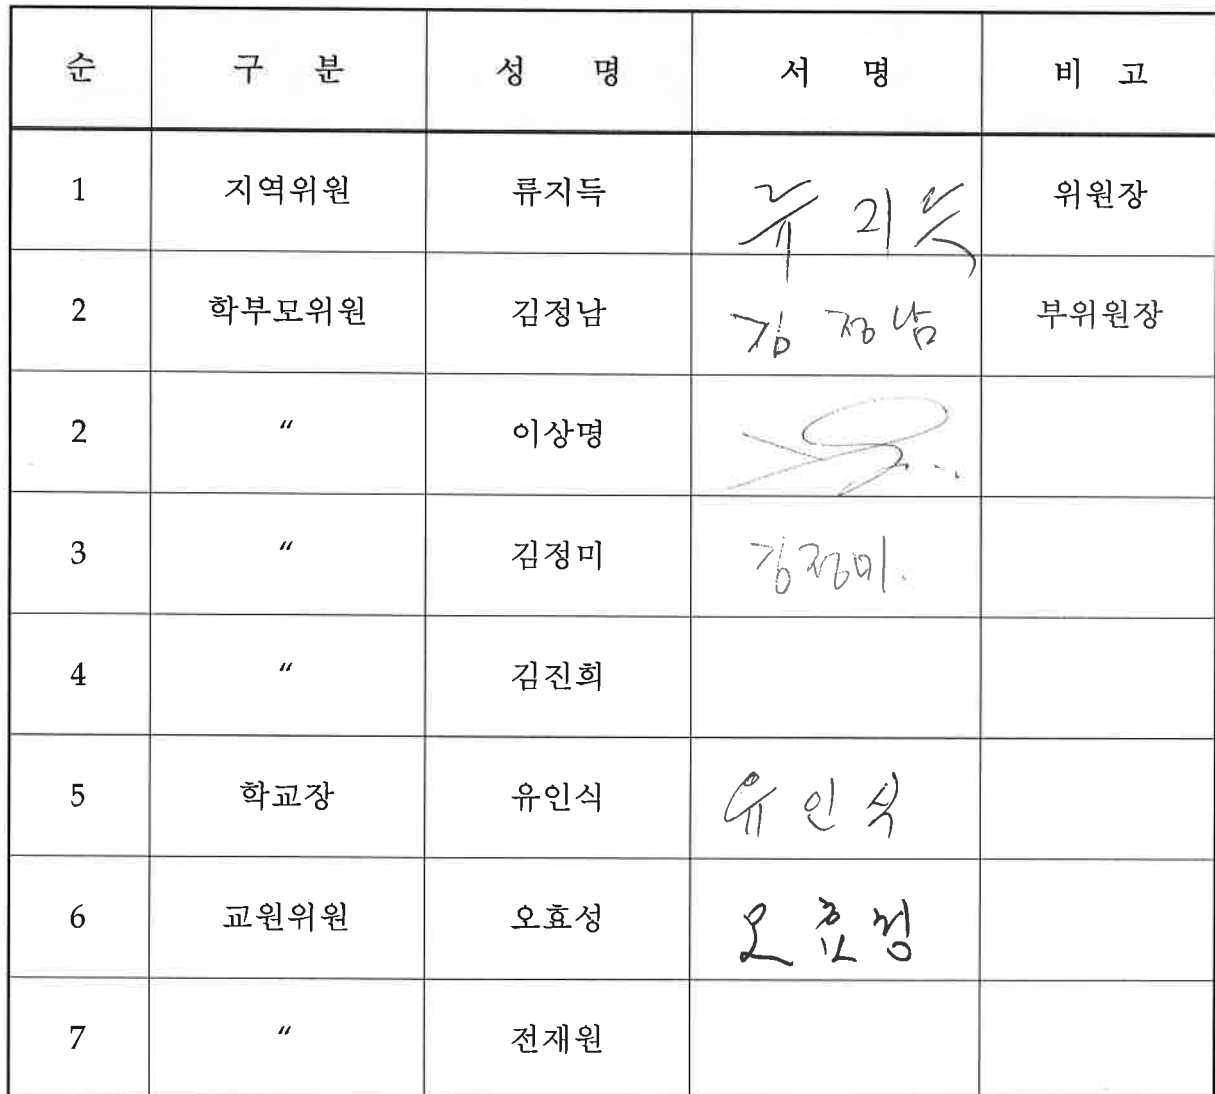 순 구 분 성 명 서 명 비 고
1 지역위원 류지득 류지득 위원장
2 학부모위원 김정남 김정남 부위원장
2 〃 이상명
3 〃 김정미 김정미.
4 〃 김진희
5 학교장 유인식 유인식
6 교원위원 오효성 오효성
7 〃 전재원